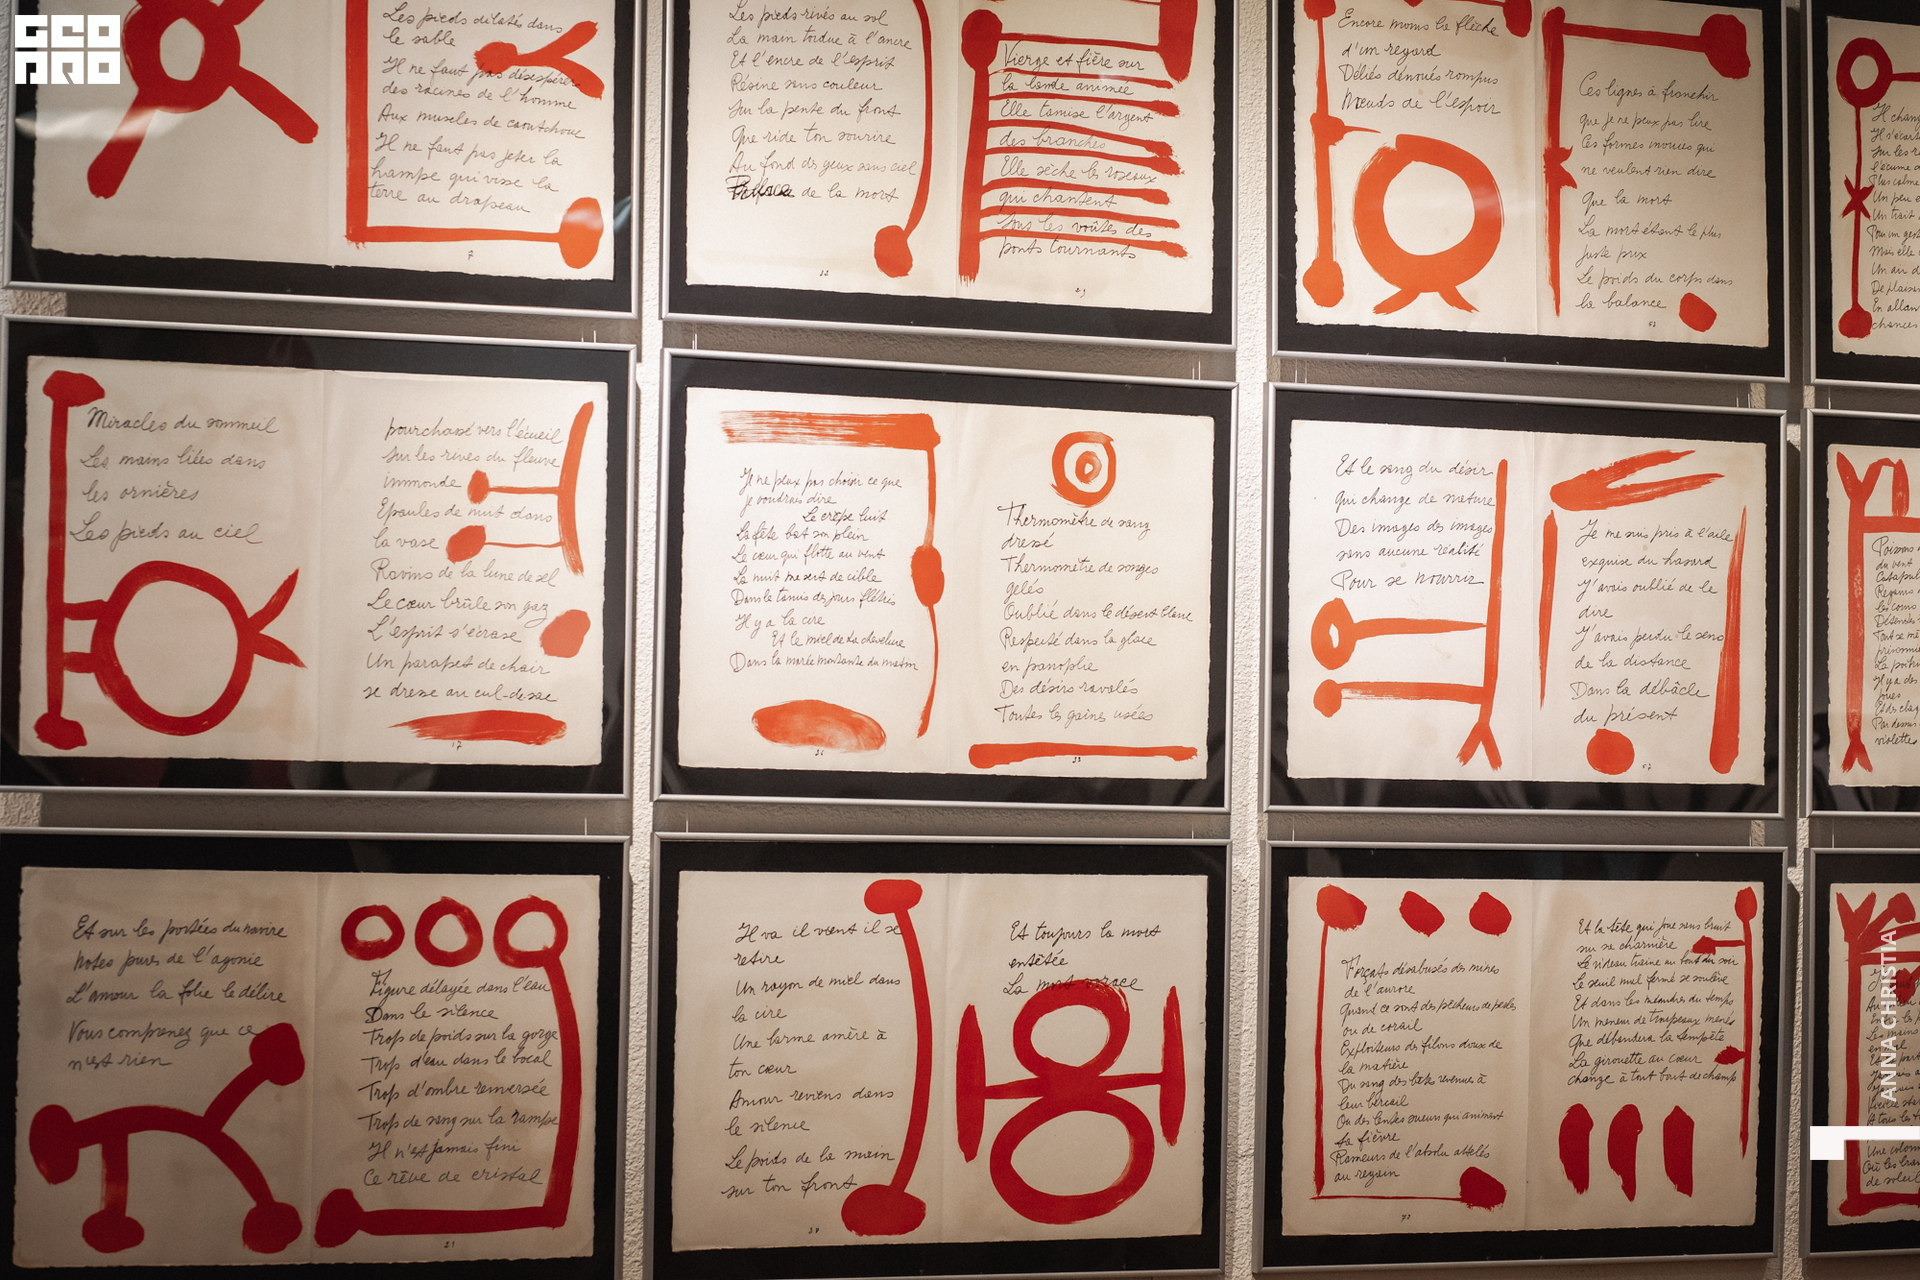 GEO
ARD
Les pieds dilatés dans
le sable
Il ne faut pas désespérer
des racines de l'homme
Aux muscles de caoutchouc
Il ne faut pas jeter la
hampe qui visse la
terre au drapeau
Les pieds rivés au sol
La main tordue à l'ancre
Et l'encre de l'esprit
Résine sans couleur
Sur la pente du front
Que ride ton sourire
Au fond des yeux sans ciel
de la mort
22
Vierge et fière sur
la bande animée
Elle tamise l'argent
des branches
Elle sèche les roseaux
qui chantent
Sous les voûtes des
ponts tournants
Encore moins la flèche
d'un regard
Déliés dénoués rompus
Nœuds de l'espoir
Ces lignes à franchir
que je ne peux pas lire
Ces formes inouïes qui
ne veulent rien dire
Que la mort
La mort étant le plus
juste prix
Le poids du corps dans
la balance
Miracles du sommeil
Les mains liées dans
les ornières
Les pieds au ciel
pourchassé vers l'écueil
Sur les rives du fleuve
immonde
Epaules de nuit dans
la vase
Ravins de la lune de sel
Le cœur brûle son gaz
L'esprit s'écrase
Un parapet de chair
se dresse au cul-de-sac
17
Je ne peux pas choisir ce que
je voudrais dire
Le crêpe luit
La fête bat son plein
Le cœur qui flotte au vent
La nuit me sert de cible
Dans le tamis des jours flétris
Il y a la cire
Et le miel de la chevelure
Dans la marée montante du matin
Thermomètre de sang
dressé
Thermomètre de songes
gelés
Oublié dans le désert blanc
Respecté dans la glace
en panoplie
Des désirs ravalés
Toutes les gaines usées
Et le sang du désir
qui change de nature
Des images des images
sans aucune réalité
Pour se nourrir
Je me suis pris à l'aile
exquise du hasard
J'avais oublié de le
dire
J'avais perdu le sens
de la distance
Dans la débâcle
du présent
Poissons
du vent
violettes
Et sur les portées du navire
Notes pures de l'agonie
L'amour la folie le délire
Vous comprenez que ce
n'est rien
Figure délayée dans l'eau
Dans le silence
Trop de poids sur la gorge
Trop d'eau dans le bocal
Trop d'ombre renversée
Trop de sang sur la rampe
Il n'est jamais fini
Ce rêve de cristal
21
Il va il vient il se
retire
Un rayon de miel dans
la cire
Une larme amère à
ton cœur
Amour reviens dans
le silence
Le poids de la main
sur ton front
Et toujours la mort
entêtée
La mort vorace
Forçats désabusés des mines
de l'aurore
Quand ce sont des pêcheurs de perles
ou de corail
Exploiteurs des filons doux de
la matière
Du sang des bêtes revenues à
leur bercail
Ou des lentes sueurs qui animent
la fièvre
Rameurs de l'absolu attelés
au regain
Et la tête qui joue sans bruit
sur sa charnière
Le rideau traîne au bout du soir
Le seuil mal fermé se soulève
Et dans les méandres du temps
Un meneur de troupeaux menés
Que débandera la tempête
La girouette au cœur
change à tout bout de champ
ANNA CHRISTIA